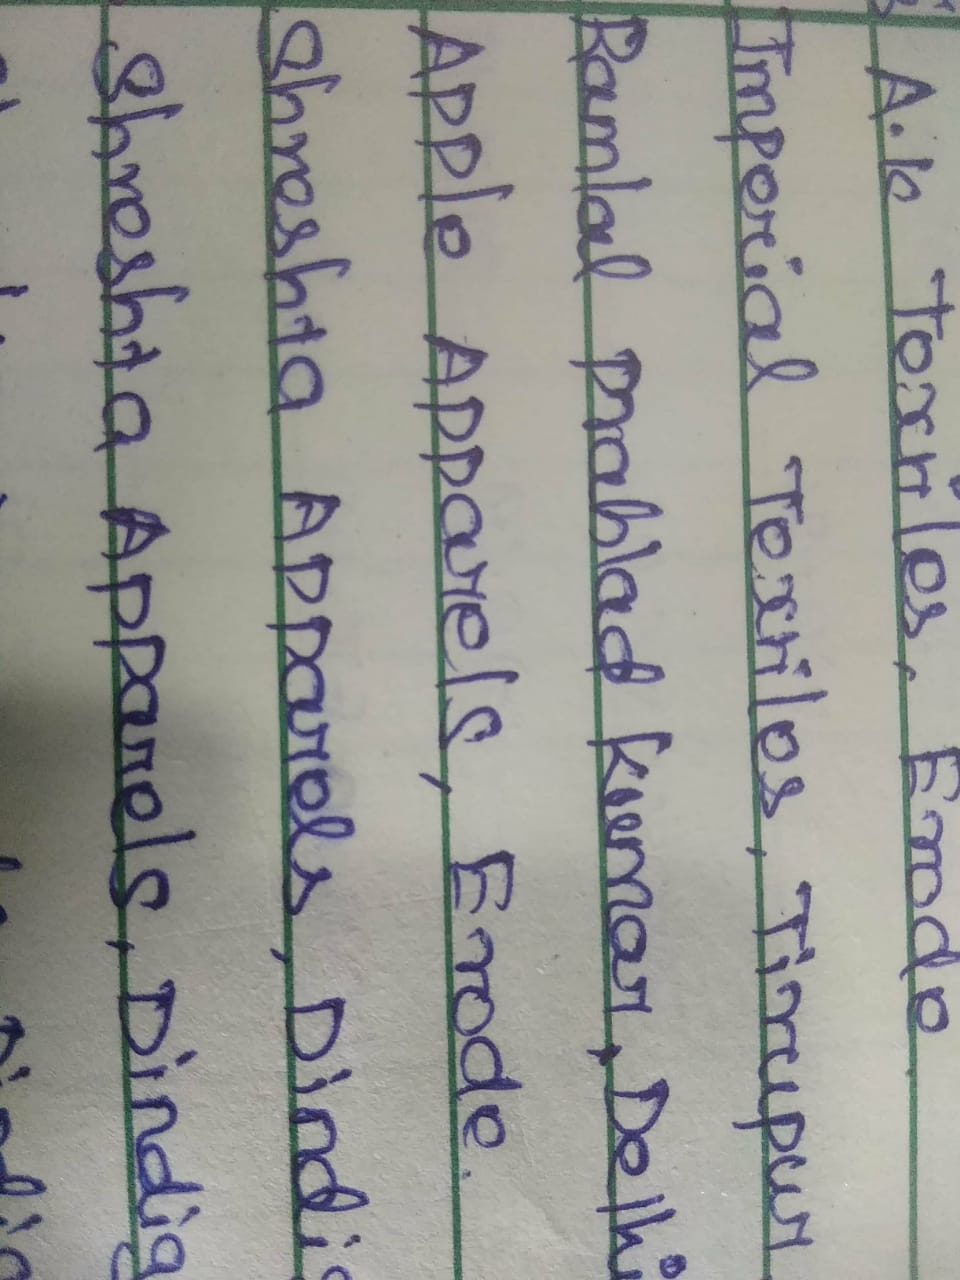 A.K Textiles, Erode.
Imperial Textiles, Tirupur
Ramlal Prahlad Kumar, Delhi
Apple Apparels, Erode.
Shreshta Apparels, Dindig
Shreshta Apparels, Dindig